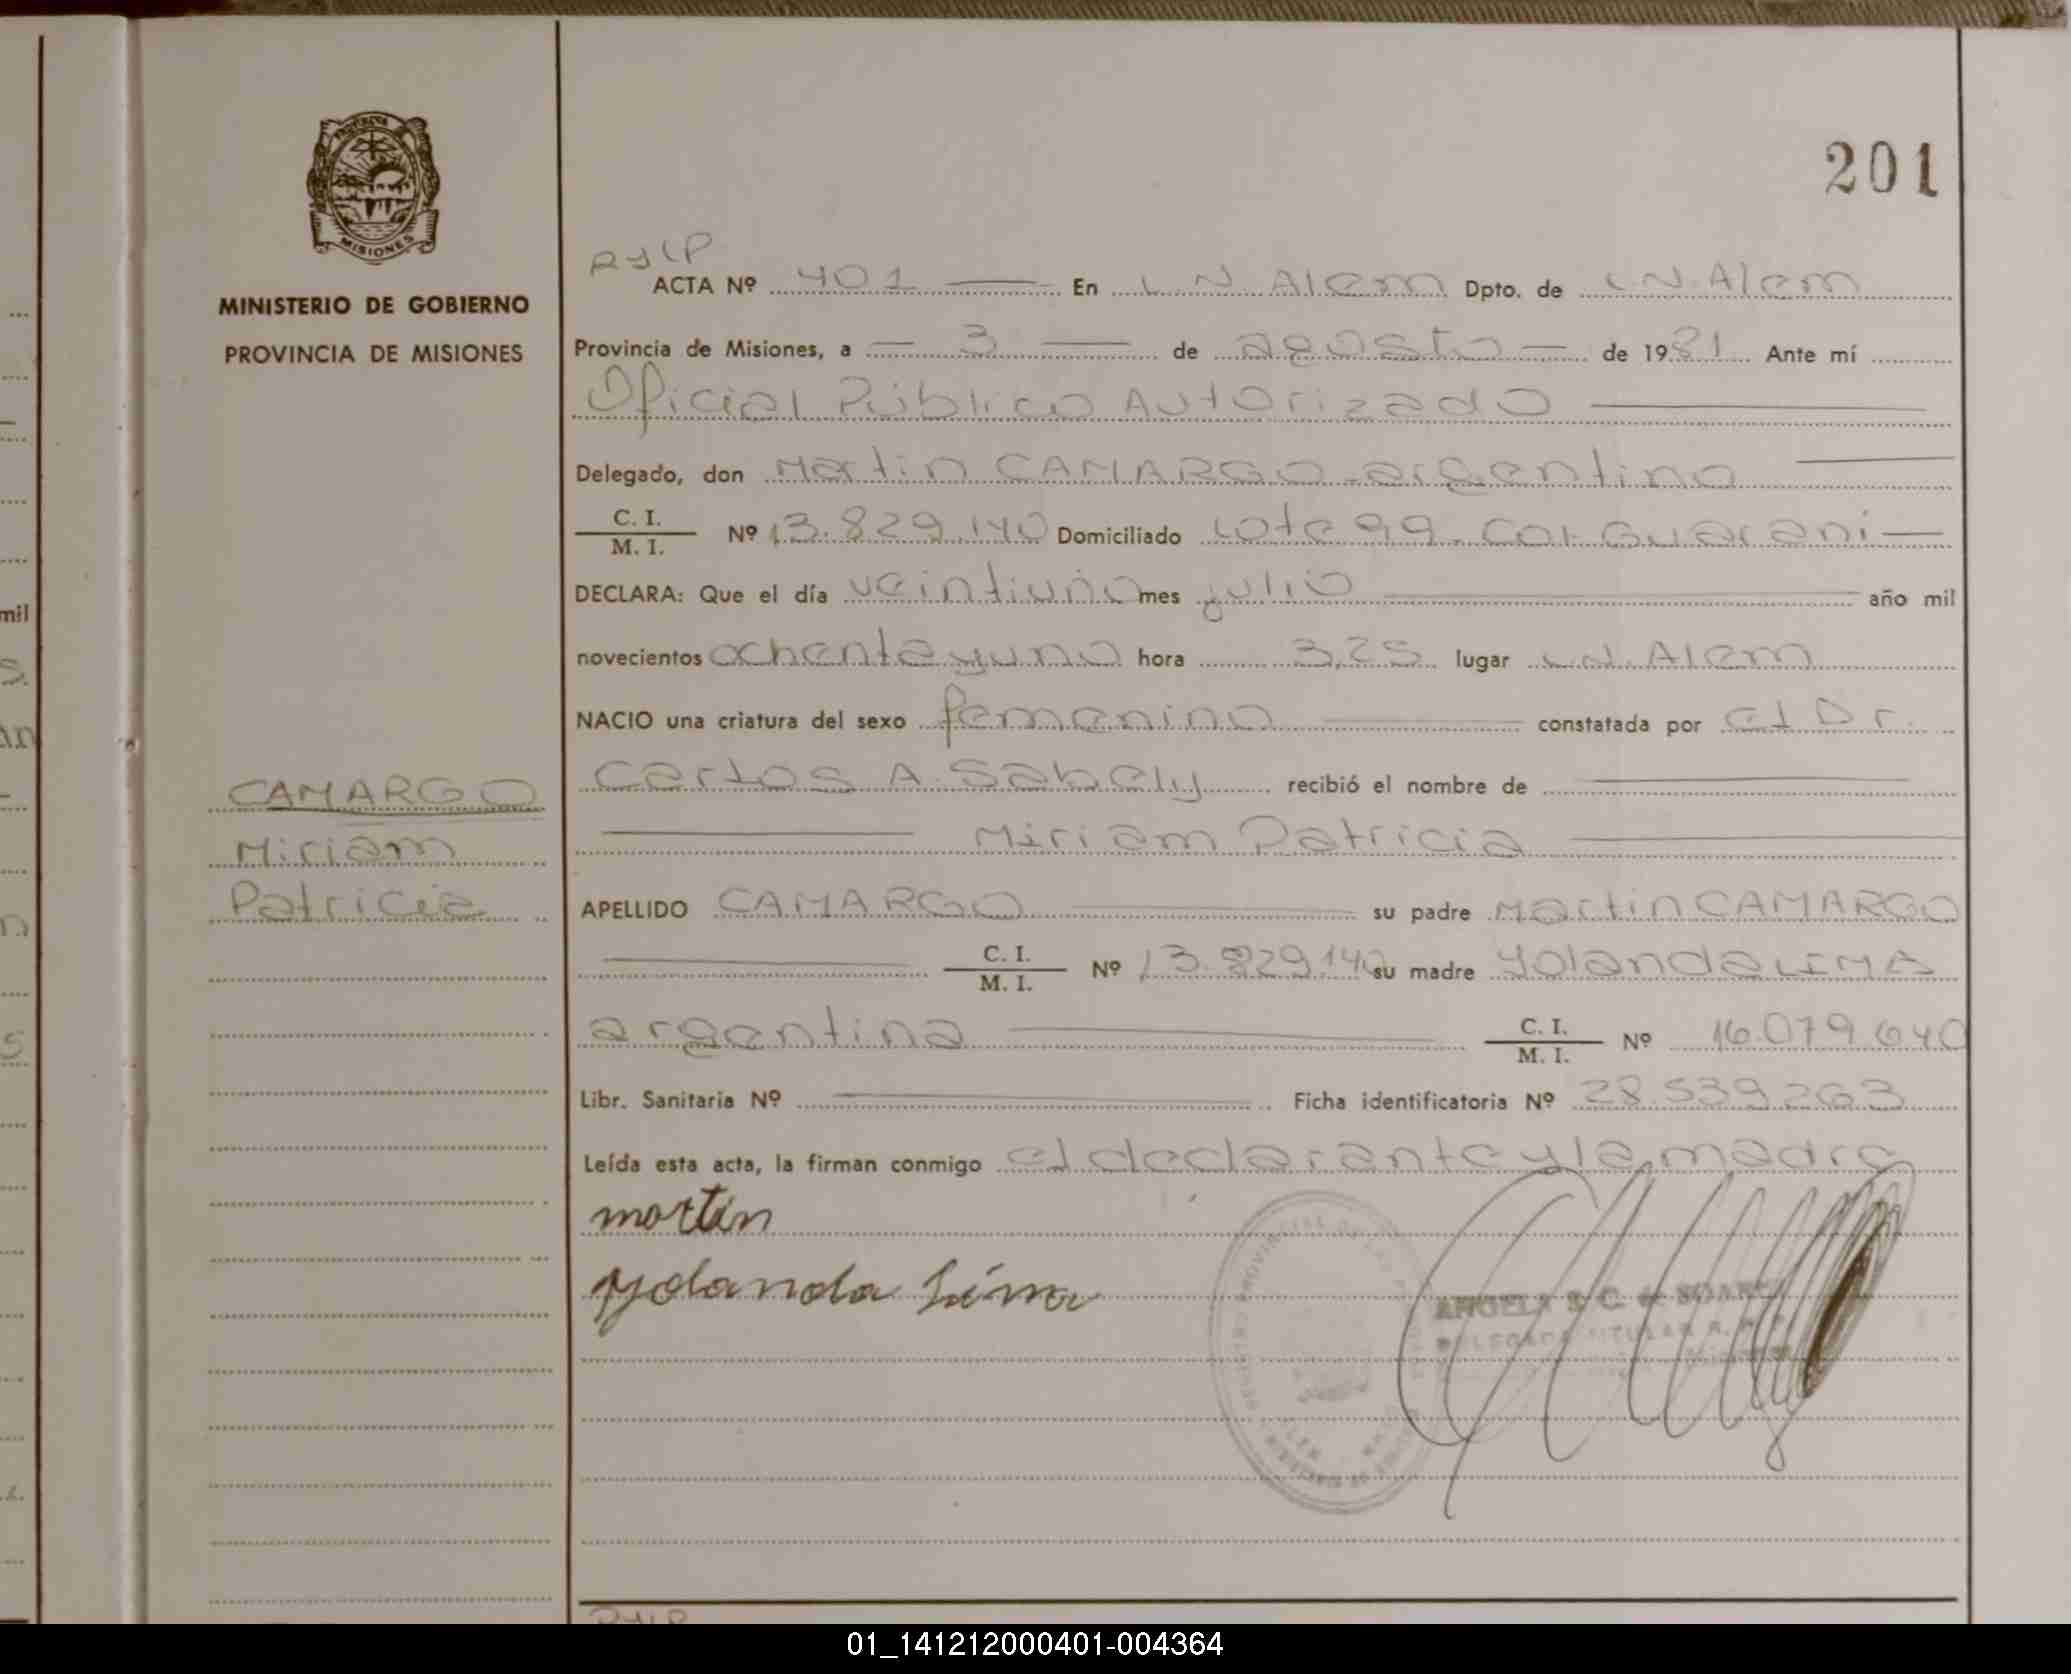 PROVINCIA
MISIONES
MINISTERIO DE GOBIERNO
PROVINCIA DE MISIONES
CAMARGO
Miriam
Patricia
201
RYLP
ACTA Nº 401 En L.N. Alem Dpto. de L.N. Alem
Provincia de Misiones, a 3 de agosto de 1981 Ante mí
Oficial Público Autorizado
Delegado, don Martin CAMARGO argentino
C. I. / M. I. Nº 13.829.140 Domiciliado Lote 99. Col. Guarani
DECLARA: Que el día veintiuno mes julio año mil
novecientos ochenta y uno hora 3,25 lugar L.N. Alem
NACIO una criatura del sexo femenino constatada por el Dr.
Carlos A. Sabely recibió el nombre de
Miriam Patricia
APELLIDO CAMARGO su padre Martin CAMARGO
C. I. / M. I. Nº 13.829.140 su madre Yolanda LIMA
argentina C. I. / M. I. Nº 16.079.640
Libr. Sanitaria Nº Ficha identificatoria Nº 28.539.263
Leída esta acta, la firman conmigo el declarante y la madre
martin
Yolanda Lima
ANGELA S. C. de SOARES
DELEGADA TITULAR R. P.
01_141212000401-004364